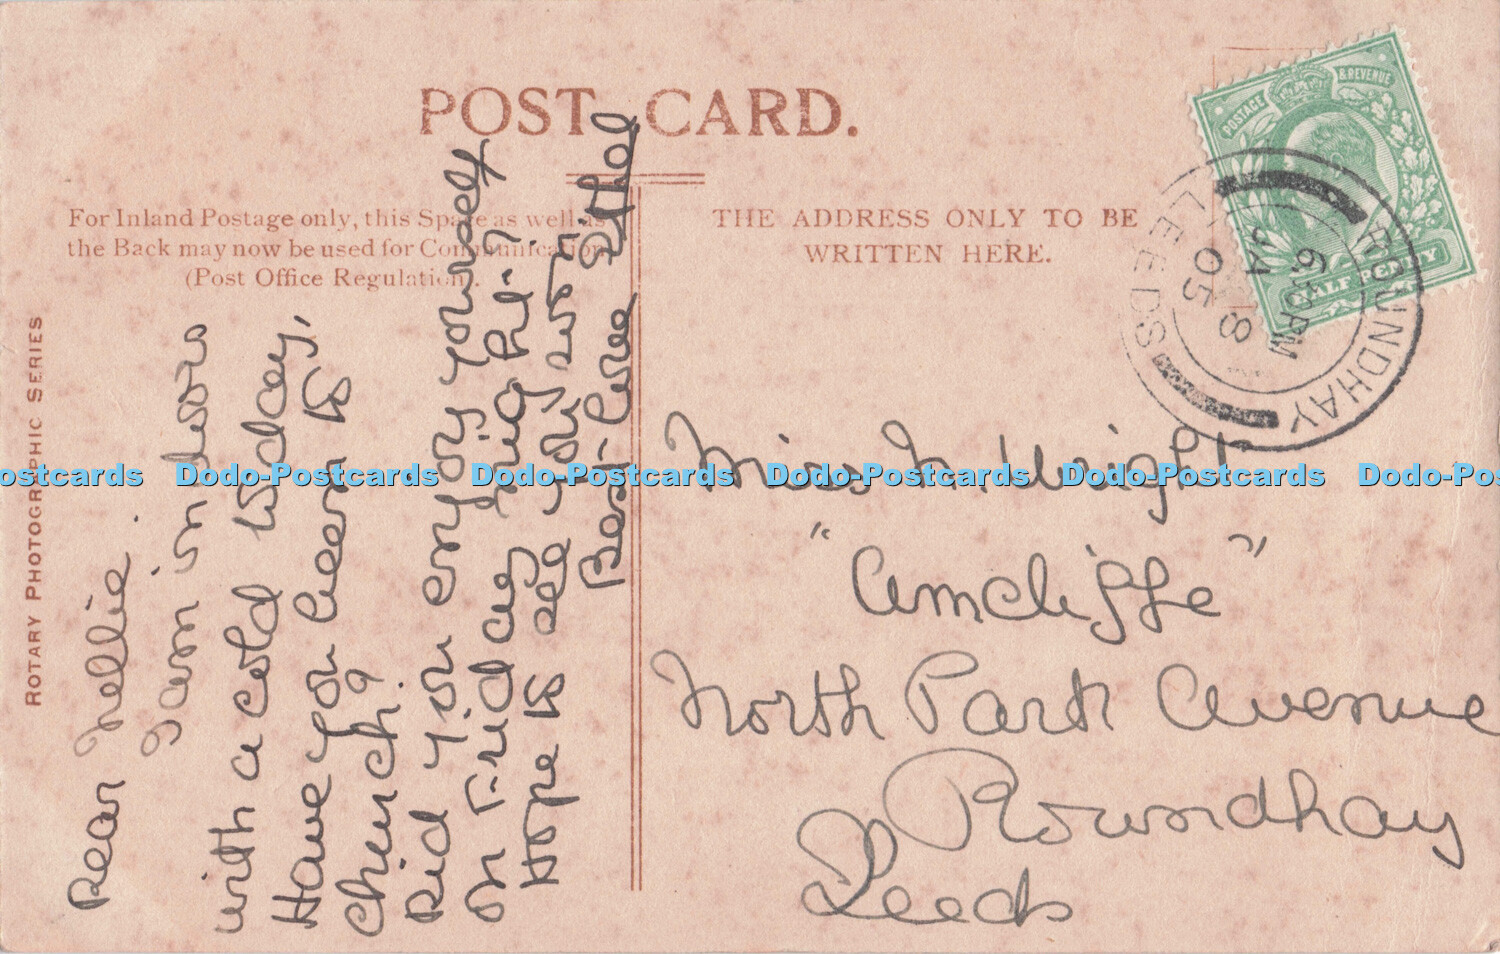 POST CARD.
For Inland Postage only, this Space as well as
the Back may now be used for Communication
(Post Office Regulation).
THE ADDRESS ONLY TO BE
WRITTEN HERE.
ROTARY PHOTOGRAPHIC SERIES
POSTAGE & REVENUE
HALF PENNY
ROUNDHAY
LEEDS
6 30 PM
JA 8
05
Dear Nellie.
I am in doors
with a cold to day,
Have you been to
church?
Did you enjoy yourself
on Friday night?
Hope to see you
Best love Ethel
Miss N. Wright
"Amcliffe"
North Park Avenue
Roundhay
Leeds
Dodo-Postcards Dodo-Postcards Dodo-Postcards Dodo-Postcards Dodo-Postcards